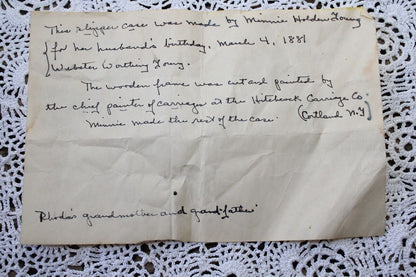 This slipper case was made by Minnie Holden Young
for her husband's birthday. March 4, 1881
Webster Worthing Young.
The wooden frame was cut and painted by
the chief painter of carriages at the Hitchcock Carriage Co.
Minnie made the rest of the case. (Cortland N.Y)
Rhoda's grandmother and grandfather